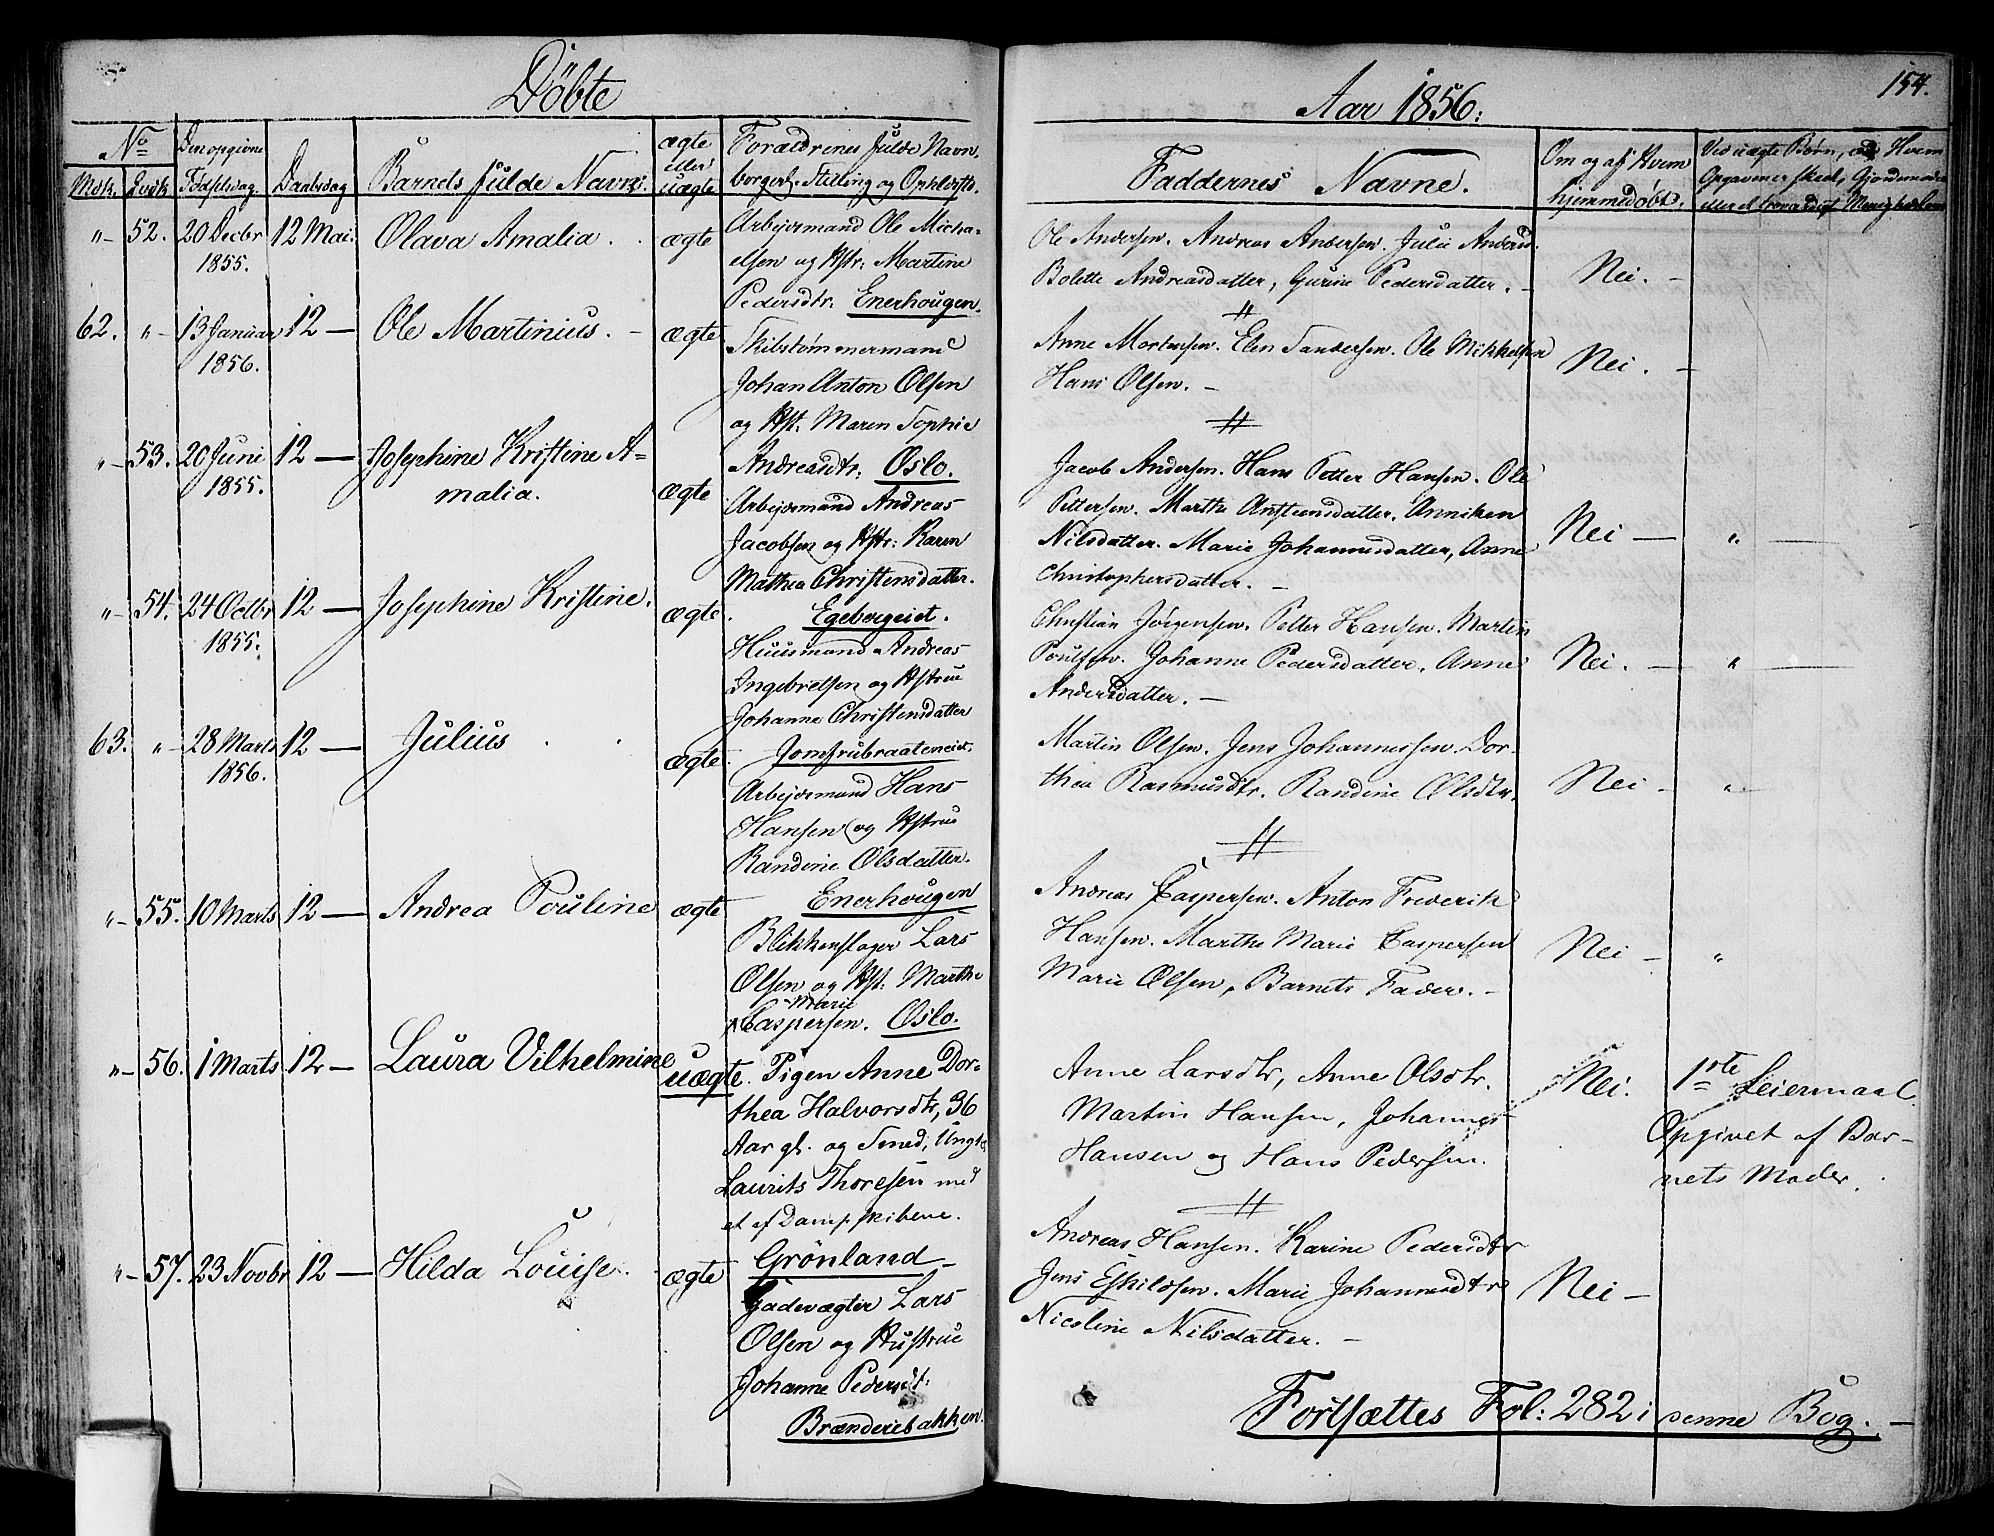 Döbte
Aar 1856.
154.
No
Mdk. Qvdk.
Den opgivne
Fødselsdag
Daabsdag
Barnets fulde Navn.
ægte
eller
uægte
Forældrenes fulde Navn,
borgerl. Stilling og Opholdst.
Faddernes Navne.
Om og af Hvem
hjemmedøbt.
Ved uægte Børn, Hvem
„ 52. 20 Decbr 12 Mai. Olava Amalia. ægte
1855.
Arbejdsmand Ole Micha-
elsen og Hstr: Martine
Pedersdtr: Enerhougen.
Ole Andersen. Andreas Andersen. Julie Anders
Bolette Andreasdatter, Gurine Pedersdatter. –
Nei. –
62. „ 13 Januar 12 – Ole Martinius. – ægte
1856.
Skibstømmermand
Johan Anton Olsen
og Hst: Maren Sophie
Andreasdtr: Oslo.
Anne Mortensen. Elen Sandersen. Ole Mikkelsen
Hans Olsen. –
Nei. –
„ 53. 20 Juni 12 – Josephine Kristine A-
1855. malia. ægte
Arbejdsmand Andreas
Jacobsen og Hstr: Karen
Mathea Christensdatter.
Egebergeiet.
Jacob Andersen. Hans Petter Hansen. Ole
Pettersen. Marthe Anstensdatter. Anniken
Nilsdatter. Marie Johannesdatter, Anne
Christophersdatter. –
Nei – „ –
„ 54. 24 Octbr 12 – Josephine Kristine. ægte.
1855.
Huusmand Andreas
Ingebretsen og Hstrue
Johanne Christensdatter
Jomfrubraateneiet.
Christian Jørgensen. Petter Hansen. Martin
Poulsen. Johanne Pedersdatter. Anne
Andersdatter. –
Nei. – „ –
63. „ 28 Marts 12 – Julius . . ægte.
1856.
Arbejdsmand Hans
Hansen og Hstrue
Randine Olsdatter.
Enerhougen
Martin Olsen. Jens Johannessen. Dor-
thea Rasmusdtr. Randine Olsdtr.
Nei – „
„ 55. 10 Marts 12 – Andrea Pouline ægte
Blikkenslager Lars
Olsen og Hst: Marthe
Marie
Caspersen. Oslo.
Andreas Caspersen. Anton Frederik
Hansen. Marthe Marie Caspersen
Marie Olsen, Barnets Fader. –
Nei – „
„ 56. 1 Marts 12 – Laura Vilhelmine uægte.
Pigen Anne Dor-
thea Halvorsdtr, 36
Aar gl. og Smed, Ungk.
Laurits Thoresen med
et af Dampskibene.
Grönland –
Anne Larsdtr, Anne Olsdtr.
Martin Hansen, Johannes
Hansen og Hans Pedersen.
Nei.
1ste Leiermaal.
Opgivet af Bar-
nets Moder.
„ 57. 23 Novbr 12 – Hilda Louise. ægte
Gadevægter Lars
Olsen og Hustrue
Johanne Pedersdt:
Brænderibakken.
Andreas Hansen. Karine Pedersdtr
Jens Eskildsen. Marie Johannesdtr
Nicoline Nilsdatter. –
Nei –
Fortsættes Fol: 282 i denne Bog. –